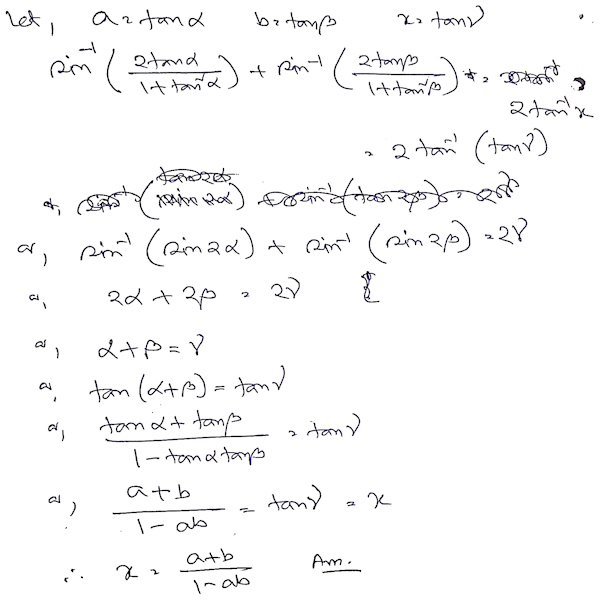 Let, a = tanα b = tanβ x = tanγ
sin⁻¹ (2tanα / 1+tan²α) + sin⁻¹ (2tanβ / 1+tan²β) = 2tan⁻¹x
= 2tan⁻¹ (tanγ)
or, sin⁻¹ (sin2α) + sin⁻¹ (sin2β) = 2γ
or, 2α + 2β = 2γ
or, α + β = γ
or, tan (α+β) = tanγ
or, tanα + tanβ / 1 - tanα tanβ = tanγ
or, a+b / 1-ab = tanγ = x
∴ x = a+b / 1-ab Ans.